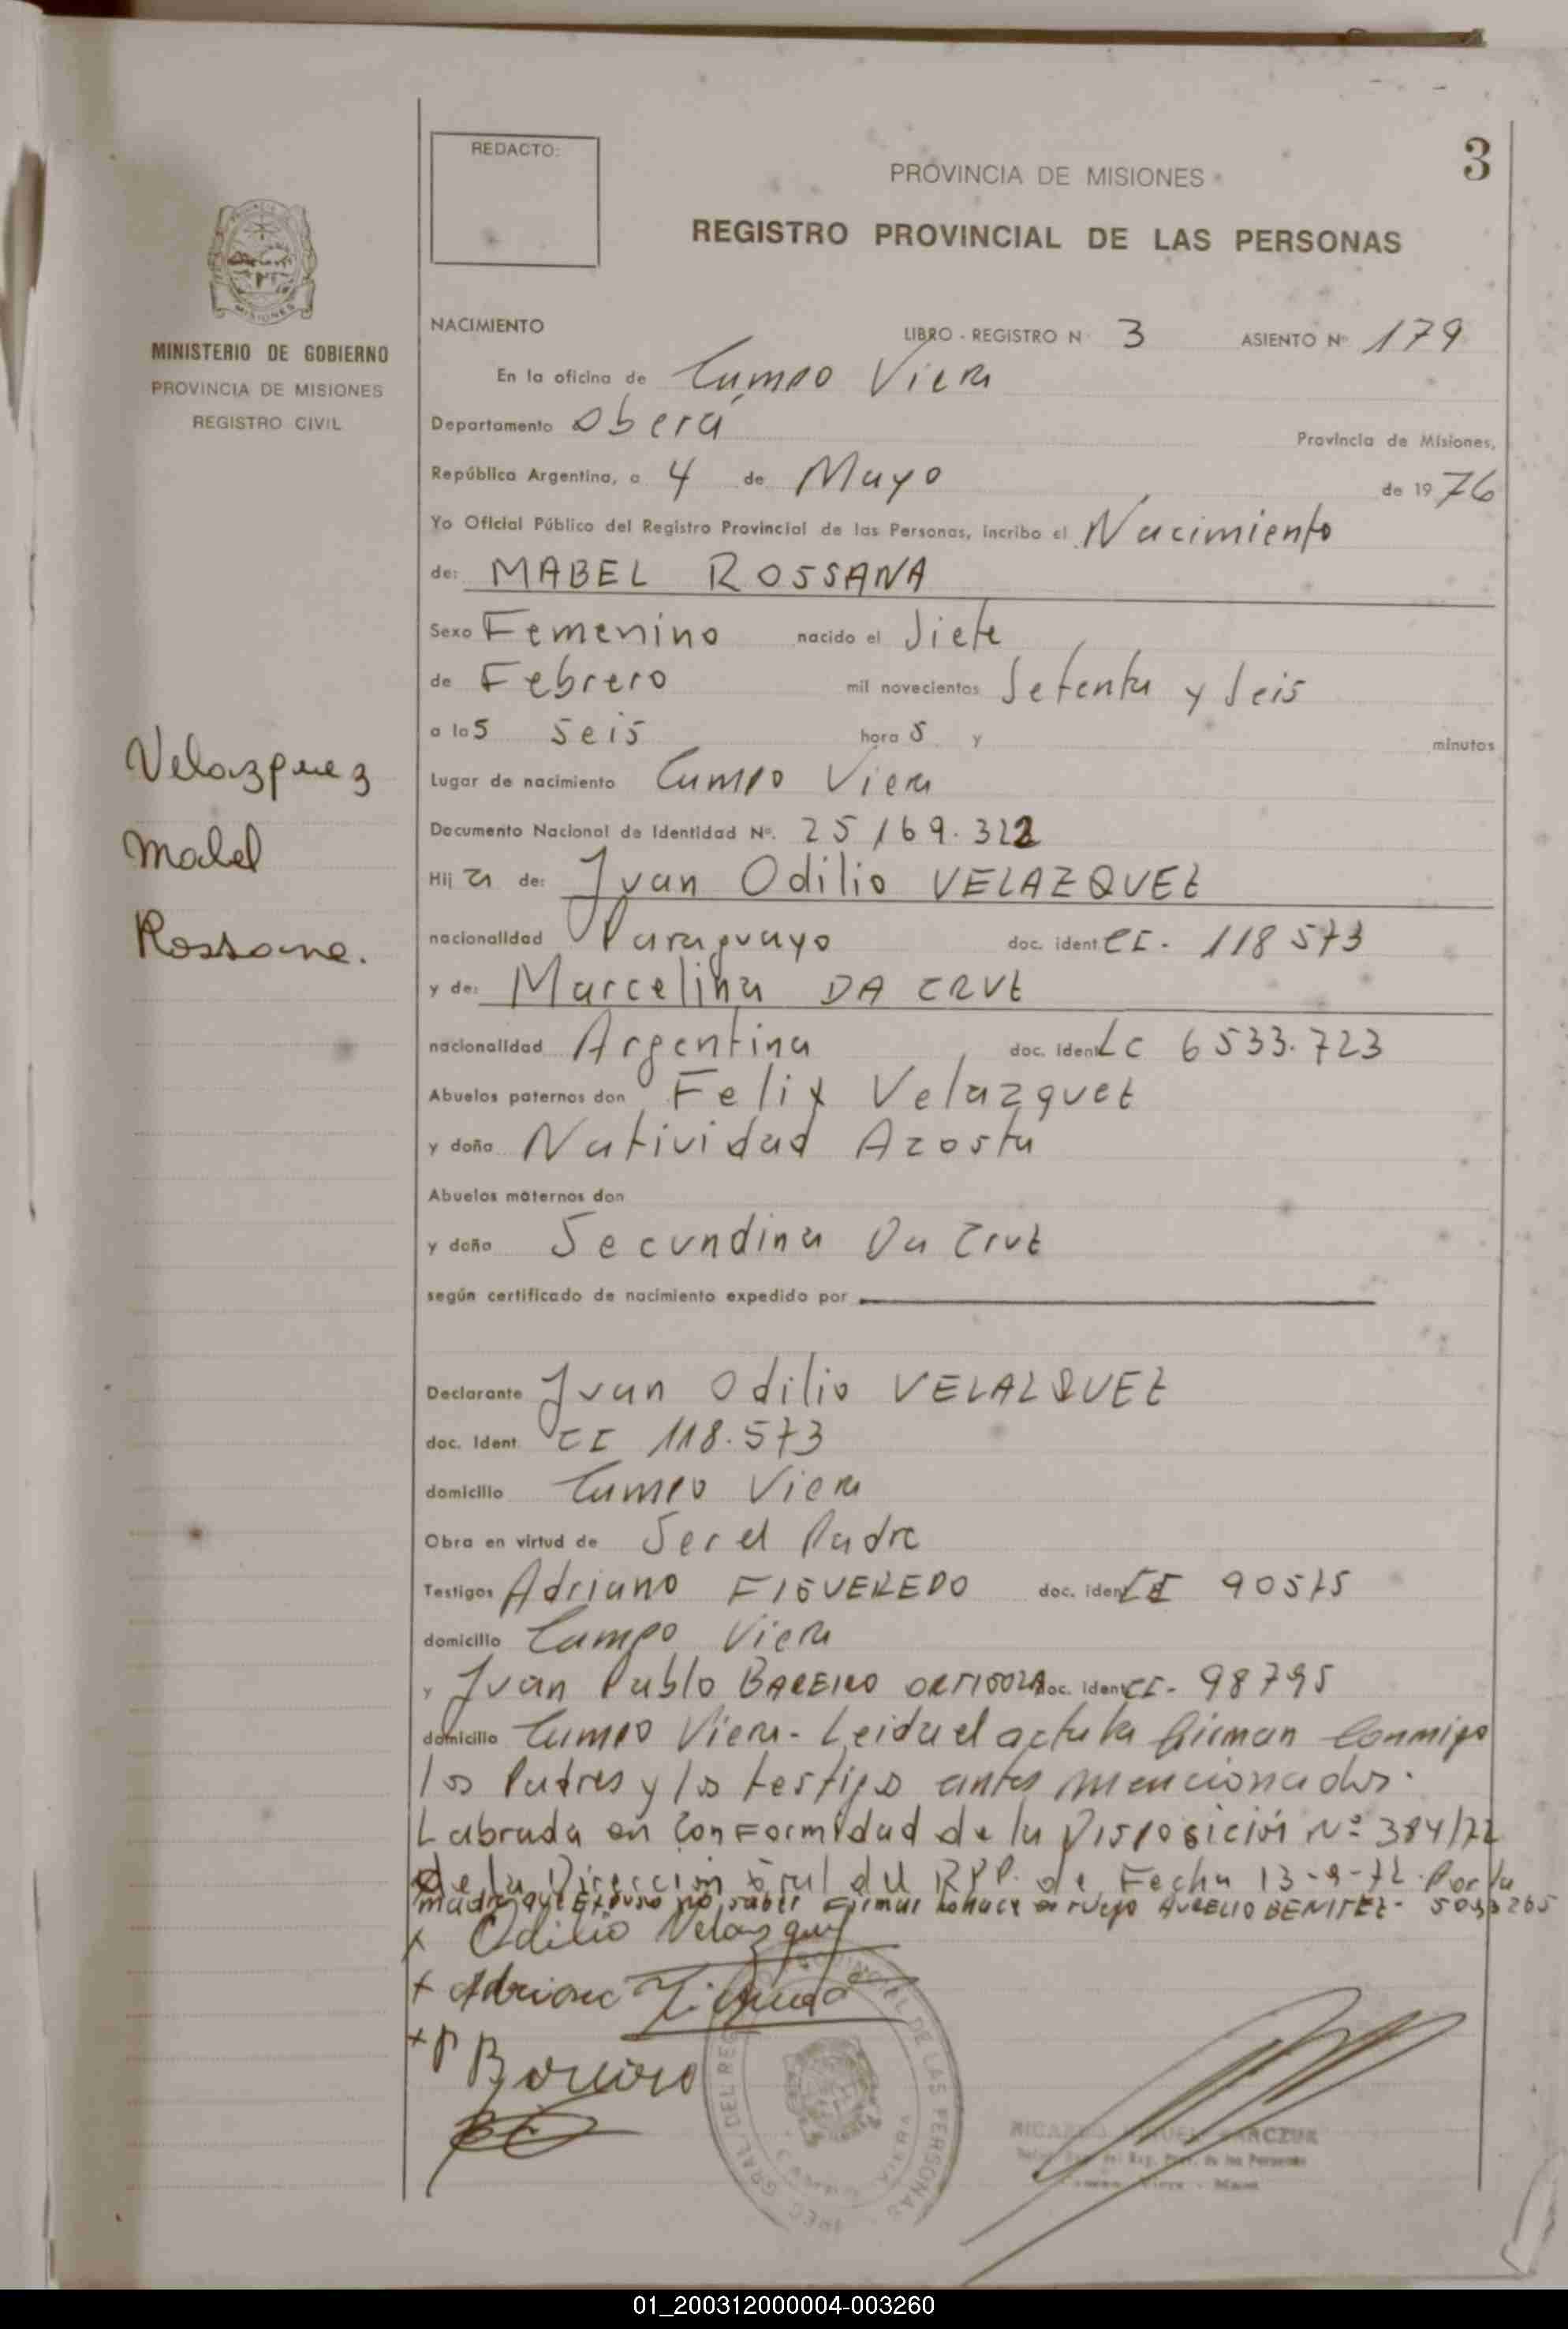 REDACTO:
3
PROVINCIA DE MISIONES
REGISTRO PROVINCIAL DE LAS PERSONAS
MISIONES
MINISTERIO DE GOBIERNO
PROVINCIA DE MISIONES
REGISTRO CIVIL
NACIMIENTO LIBRO - REGISTRO N 3 ASIENTO Nº 179
En la oficina de Campo Viera
Departamento Oberá Provincia de Misiones,
República Argentina, a 4 de Mayo de 1976
Yo Oficial Público del Registro Provincial de las Personas, incribo el Nacimiento
de: MABEL ROSSANA
Sexo Femenino nacido el Siete
de Febrero mil novecientos Setenta y Seis
a las seis horas y minutos
Velazquez
Mabel
Rossana.
Lugar de nacimiento Campo Viera
Documento Nacional de Identidad Nº. 25169.322
Hija de: Juan Odilio VELAZQUEZ
nacionalidad Paraguayo doc. ident CI. 118573
y de: Marcelina DA CRUZ
nacionalidad Argentina doc. ident LC 6533.723
Abuelos paternos don Felix Velazquez
y doña Natividad Acosta
Abuelos maternos don
y doña Secundina Da Cruz
según certificado de nacimiento expedido por
Declarante Juan Odilio VELAZQUEZ
doc. Ident CI 118.573
domicilio Campo Viera
Obra en virtud de Ser el Padre
Testigos Adriano FIGUEREDO doc. ident CI 90575
domicilio Campo Viera
y Juan Pablo BAREIRO ORTIGOZA doc. ident CI- 98795
domicilio Campo Viera- Leida el acta la firman conmigo
los Padres y los testigos antes mencionados.
Labrada en Conformidad de la Disposición Nº 384/72
de la Dirección Gral del RPP. de Fecha 13-9-72. Por la
madre que Expuso no saber Firmar lo hace a ruego AURELIO BENITEZ-
x Odilio Velazquez
+ Adriano Figueredo
+ P Bareiro
DEL REG PROVINCIAL DE LAS PERSONAS
01_200312000004-003260